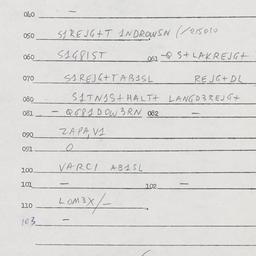 040 –
050 S1REJG+T 1NDROWSN (/015010
060 S1G81ST 061 -Q S+LAKREJG+
070 S1REJG+TAB1SL REJG+DL
080 S1TN1S+HALT+ LANGD3REJG+
081 – QG81DOW3RN 082 –
090 ZAPA,V1
091 0
100 VARCI AB1SL
101 – 102 –
110 LOM3X/–
103 –